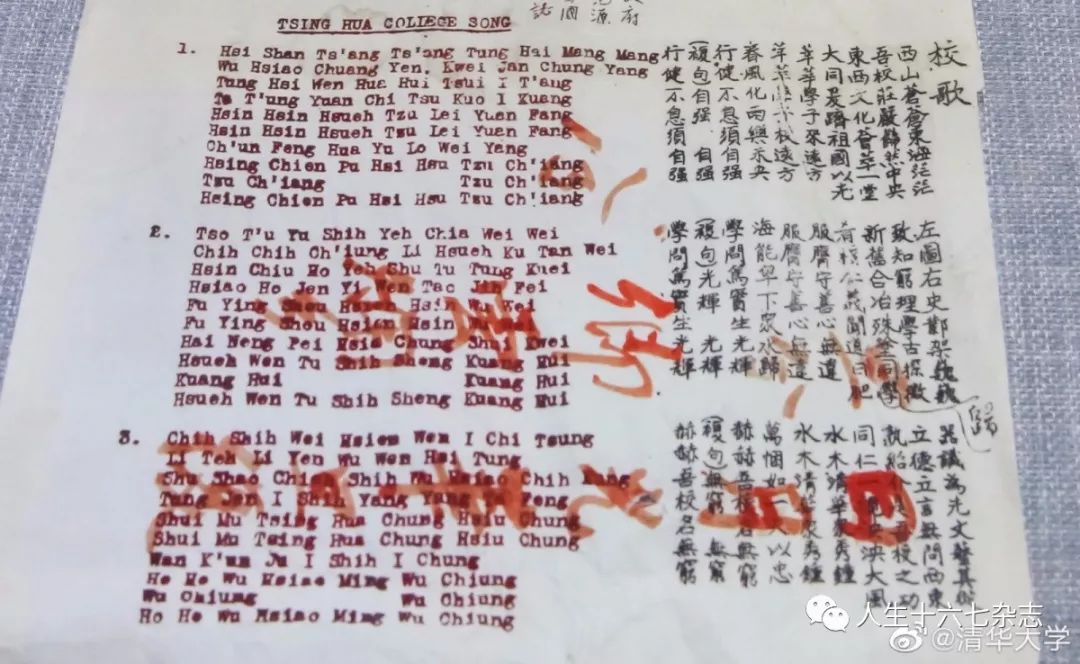 TSING HUA COLLEGE SONG
1. Hsi Shan Ts'ang Ts'ang Tung Hai Mang Mang
Wu Hsiao Chuang Yen, Kwei Jan Chung Yang
Tung Hsi Wen Hua Hui Tsui I T'ang
Ta T'ung Yuan Chi Tsu Kuo I Kuang
Hsin Hsin Hsueh Tzu Lei Yuan Fang
Hsin Hsin Hsueh Tzu Lei Yuan Fang
Ch'un Feng Hua Yu Lo Wei Yang
Hsing Chien Pu Hsi Hsu Tzu Ch'iang
Tzu Ch'iang Tzu Ch'iang
Hsing Chien Pu Hsi Hsu Tzu Ch'iang
2. Tso T'u Yu Shih Yeh Chia Wei Wei
Chih Chih Ch'iung Li Hsueh Ku Tan Wei
Hsin Chiu Ho Yeh Shu Tu Tung Kuei
Hsiao Ho Jen Yi Wen Tao Jih Fei
Fu Ying Shou Hsien Hsin Wu Wei
Fu Ying Shou Hsian Hsin Wu Wei
Hai Neng Pei Hsia Chung Shui Kwei
Hsueh Wen Tu Shih Sheng Kuang Hui
Kuang Hui Kuang Hui
Hsueh Wen Tu Shih Sheng Kuang Hui
3. Chih Shih Wei Hsien Wen I Chi Tsung
Li Teh Li Yen Wu Wen Hsi Tung
Shu Shao Chieh Shih Wu Hsiao Chih Kung
Tung Jen I Shih Yang Yang Ta Feng
Shui Mu Tsing Hua Chung Hsiu Chung
Shui Mu Tsing Hua Chung Hsiu Chung
Wan K'un Ju I Shih I Chung
He He Wu Hsiao Ming Wu Chiung
Wu Chiung Wu Chiung
Ho He Wu Hsiao Ming Wu Chiung
校歌
西山蒼蒼東海茫茫
吾校莊嚴巋然中央
東西文化薈萃一堂
大同爰躋祖國以光
莘莘學子來遠方
莘莘 遠方
春風化雨樂未央
行健不息須自强
(複句自强 自强
行健不息須自强
左圖右史鄴架巍巍
致知窮理學古探微
新舊合冶殊途同學
歸
肴核仁義聞道日肥
服膺守善心無違
服膺守善心無違
海能卑下衆水歸
學問篤實生光輝
(複句光輝 光輝
學問篤實生光輝
器識爲先文藝其從
立德立言無問西東
孰紹介是吾校之功
同仁一視泱泱大風
水木清華衆秀鍾
水木清華衆秀鍾
萬悃如一矢以忠
赫赫吾校名無窮
(複句無窮 無窮
赫赫吾校名無窮
人生十六七杂志
@清华大学